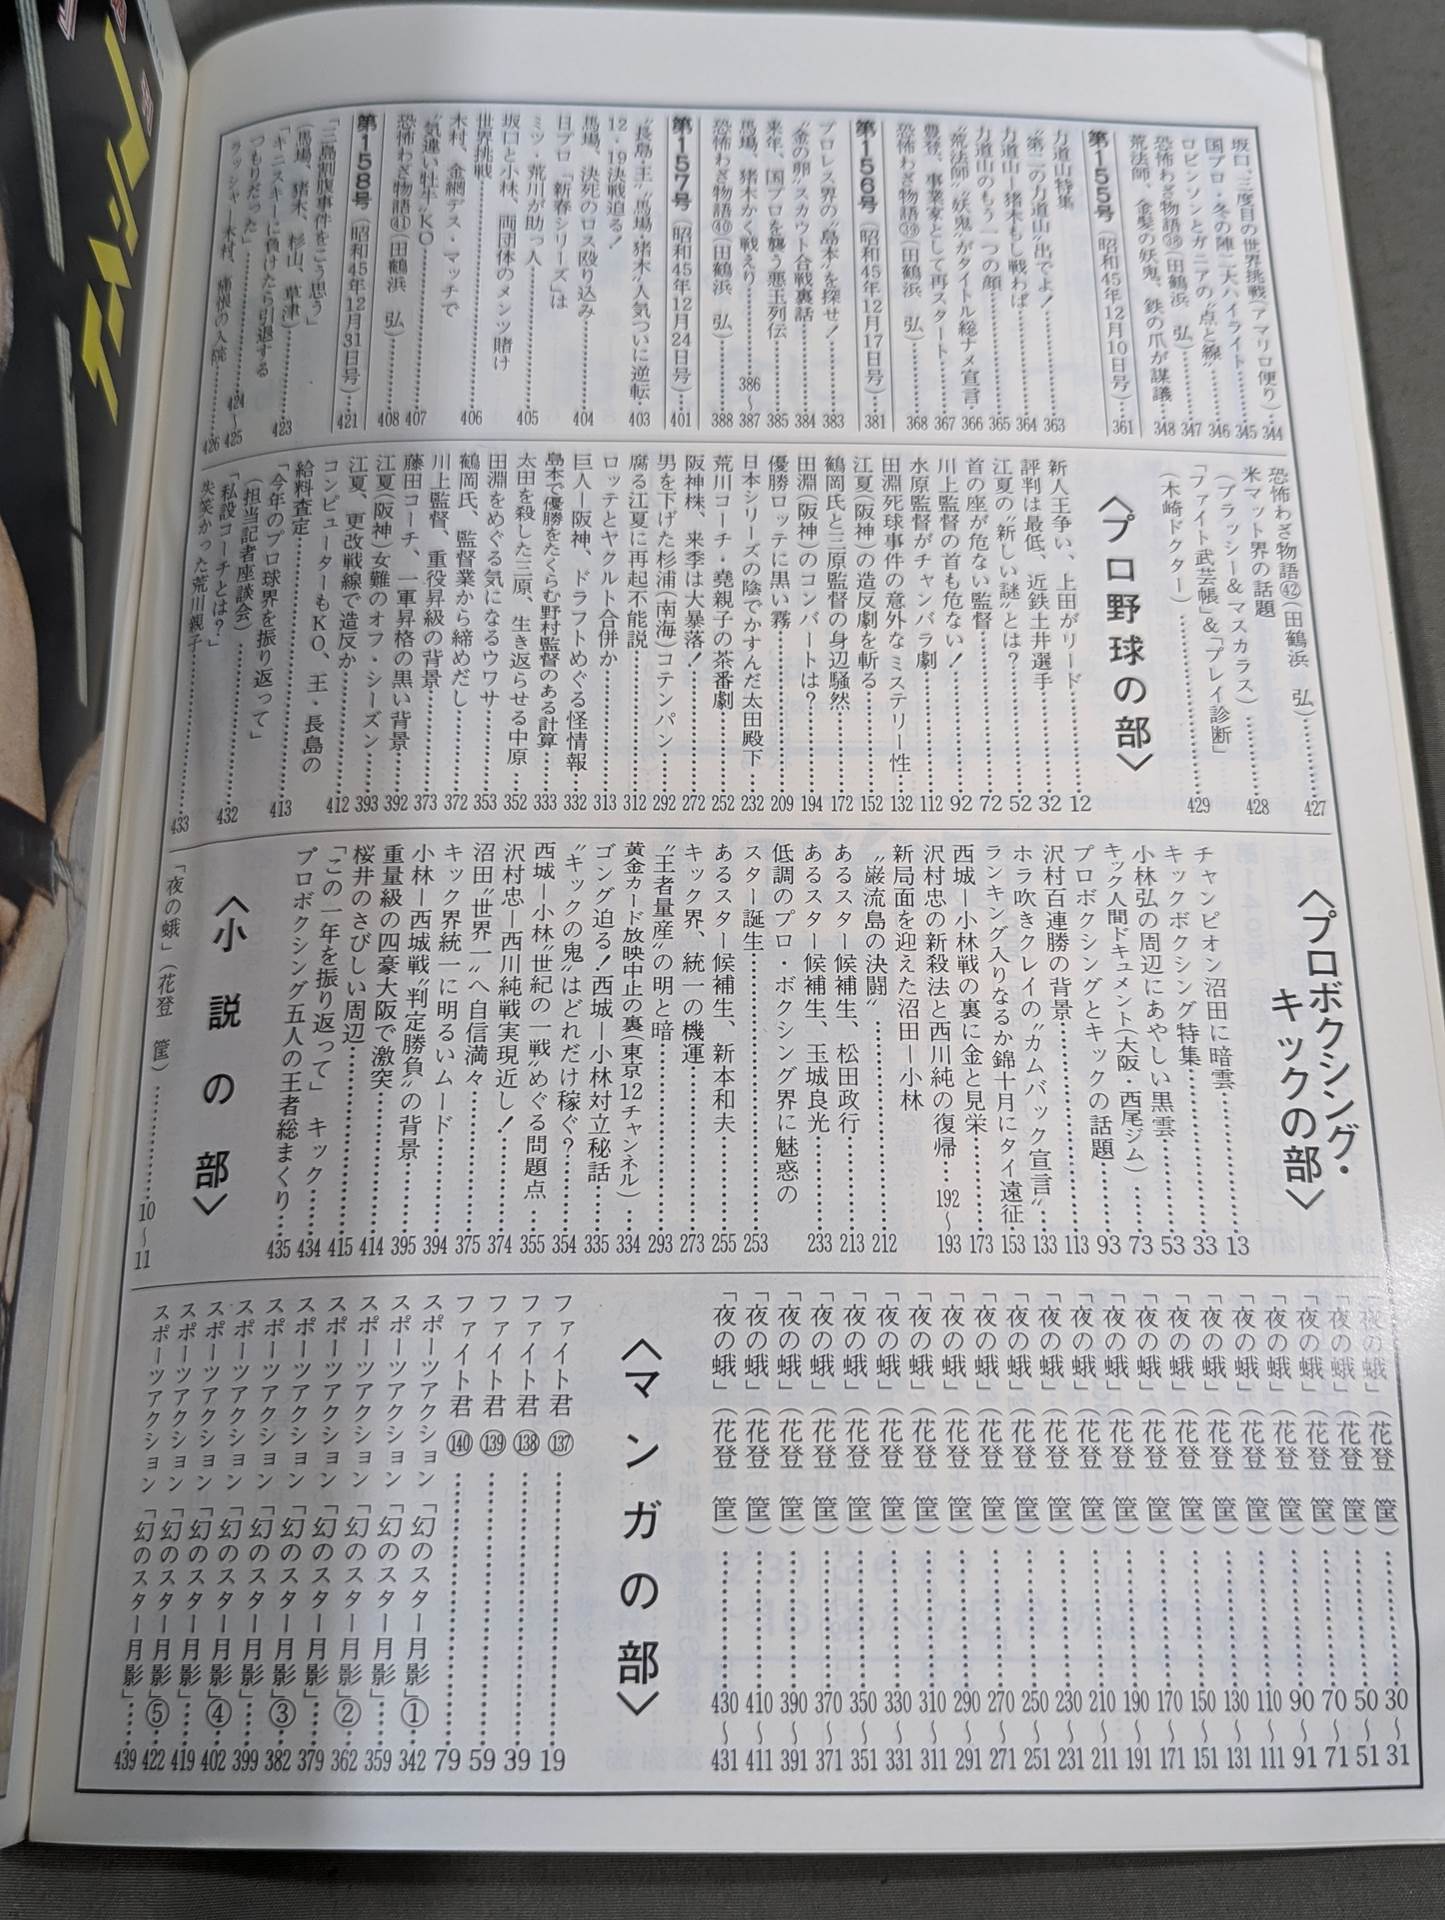 坂口、三度目の世界挑戦(アマリロ便り)…344
国プロ・冬の陣二大ハイライト…345
ロビンソンとガニアの〝点と線〟…346
恐怖わざ物語㊳(田鶴浜 弘)…347
荒法師、金髪の妖鬼、鉄の爪が謀議…348
第155号(昭和45年12月10日号)…361
力道山特集
〝第二の力道山〟出でよ!…363
力道山―猪木もし戦わば…364
力道山のもう一つの顔…365
〝荒法師〟〝妖鬼〟がタイトル総ナメ宣言…366
豊登、事業家として再スタート…367
恐怖わざ物語㊴(田鶴浜 弘)…368
第156号(昭和45年12月17日号)…381
プロレス界の〝島本〟を探せ!…383
〝金の卵〟スカウト合戦裏話…384
来年、国プロを襲う悪王列伝…385
馬場、猪木かく戦えり…386〜387
恐怖わざ物語㊵(田鶴浜 弘)…388
第157号(昭和45年12月24日号)…401
〝長島・王〟〝馬場・猪木〟人気ついに逆転…403
12・19決戦迫る!
馬場、決死のロス殴り込み…404
日プロ「新春シリーズ」は
ミツ・荒川が助っ人…405
坂口と小林、両団体のメンツ賭け
世界挑戦…406
木村、金網デス・マッチで
〝気違い牡牛〟KO…407
恐怖わざ物語㊶(田鶴浜 弘)…408
第158号(昭和45年12月31日号)…421
「三島割腹事件をこう思う」
(馬場、猪木、杉山、草津)…423
「キニスキーに負けたら引退する
つもりだった」…424〜425
ラッシャー木村、痛恨の入院…426
恐怖わざ物語㊷(田鶴浜 弘)…427
米マット界の話題
(ブラッシー&マスカラス)…428
「ファイト武芸帳」&「プレイ診断」
(木崎ドクター)…429
〈プロ野球の部〉
新人王争い、上田がリード…12
評判は最低、近鉄土井選手…32
江夏の〝新しい謎〟とは?…52
首の座が危ない監督…72
川上監督の首も危ない!…92
水原監督がチャンバラ劇…112
田淵死球事件の意外なミステリー性…132
江夏(阪神)の造反劇を斬る…152
鶴岡氏と三原監督の身辺騒然…172
田淵(阪神)のコンバートは?…194
優勝ロッテに黒い霧…209
日本シリーズの陰でかすんだ太田殿下…232
荒川コーチ・堯親子の茶番劇…252
阪神株、来季は大暴落!…272
男を下げた杉浦(南海)コテンパン…292
腐る江夏に再起不能説…312
ロッテとヤクルト合併か…313
巨人―阪神、ドラフトめぐる怪情報…332
島本で優勝をたくらむ野村監督のある計算…333
太田を殺した三原、生き返らせる中原…352
田淵をめぐる気になるウワサ…353
鶴岡氏、監督業から締めだし…372
川上監督、重役昇級の背景…373
藤田コーチ、一軍昇格の黒い背景…392
江夏(阪神)女難のオフ・シーズン…393
江夏、更改戦線で造反か…412
コンピューターもKO、王・長島の
給料査定…413
「今年のプロ球界を振り返って」
(担当記者座談会)…432
「私設コーチとは?」
失笑かった荒川親子…433
〈プロボクシング・
キックの部〉
チャンピオン沼田に暗雲…13
キックボクシング特集…33
小林弘の周辺にあやしい黒雲…53
キック人間ドキュメント(大阪・西尾ジム)…73
プロボクシングとキックの話題…93
沢村百連勝の背景…113
ホラ吹きクレイの〝カムバック宣言〟…133
ランキング入りなるか錦十月にタイ遠征…153
西城―小林戦の裏に金と見栄…173
沢村忠の新殺法と西川純の復帰…192〜193
新局面を迎えた沼田―小林
〝巌流島の決闘〟…212
あるスター候補生、松田政行…213
あるスター候補生、玉城良光…233
低調のプロ・ボクシング界に魅惑の
スター誕生…253
あるスター候補生、新本和夫…255
キック界、統一の機運…273
〝王者量産〟の明と暗…293
黄金カード放映中止の裏(東京12チャンネル)…334
ゴング迫る!西城―小林対立秘話…335
〝キックの鬼〟はどれだけ稼ぐ?…354
西城―小林〝世紀の一戦〟めぐる問題点…355
沢村忠―西川純戦実現近し!…374
沼田〝世界一〟へ自信満々…375
キック界統一に明るいムード…394
小林―西城戦〝判定勝負〟の背景…395
重量級の四豪大阪で激突…414
桜井のさびしい周辺…415
「この一年を振り返って」キック…434
プロボクシング五人の王者総まくり…435
〈小説の部〉
「夜の蛾」(花登 筐)…10〜11
「夜の蛾」(花登 筐)…30〜31
「夜の蛾」(花登 筐)…50〜51
「夜の蛾」(花登 筐)…70〜71
「夜の蛾」(花登 筐)…90〜91
「夜の蛾」(花登 筐)…110〜111
「夜の蛾」(花登 筐)…130〜131
「夜の蛾」(花登 筐)…150〜151
「夜の蛾」(花登 筐)…170〜171
「夜の蛾」(花登 筐)…190〜191
「夜の蛾」(花登 筐)…210〜211
「夜の蛾」(花登 筐)…230〜231
「夜の蛾」(花登 筐)…250〜251
「夜の蛾」(花登 筐)…270〜271
「夜の蛾」(花登 筐)…290〜291
「夜の蛾」(花登 筐)…310〜311
「夜の蛾」(花登 筐)…330〜331
「夜の蛾」(花登 筐)…350〜351
「夜の蛾」(花登 筐)…370〜371
「夜の蛾」(花登 筐)…390〜391
「夜の蛾」(花登 筐)…410〜411
「夜の蛾」(花登 筐)…430〜431
〈マンガの部〉
ファイト君 137…19
ファイト君 138…39
ファイト君 139…59
ファイト君 140…79
スポーツアクション「幻のスター月影」①…342
スポーツアクション「幻のスター月影」…359
スポーツアクション「幻のスター月影」②…362
スポーツアクション「幻のスター月影」…379
スポーツアクション「幻のスター月影」③…382
スポーツアクション「幻のスター月影」…399
スポーツアクション「幻のスター月影」④…402
スポーツアクション「幻のスター月影」…419
スポーツアクション「幻のスター月影」⑤…422
スポーツアクション「幻のスター月影」…439